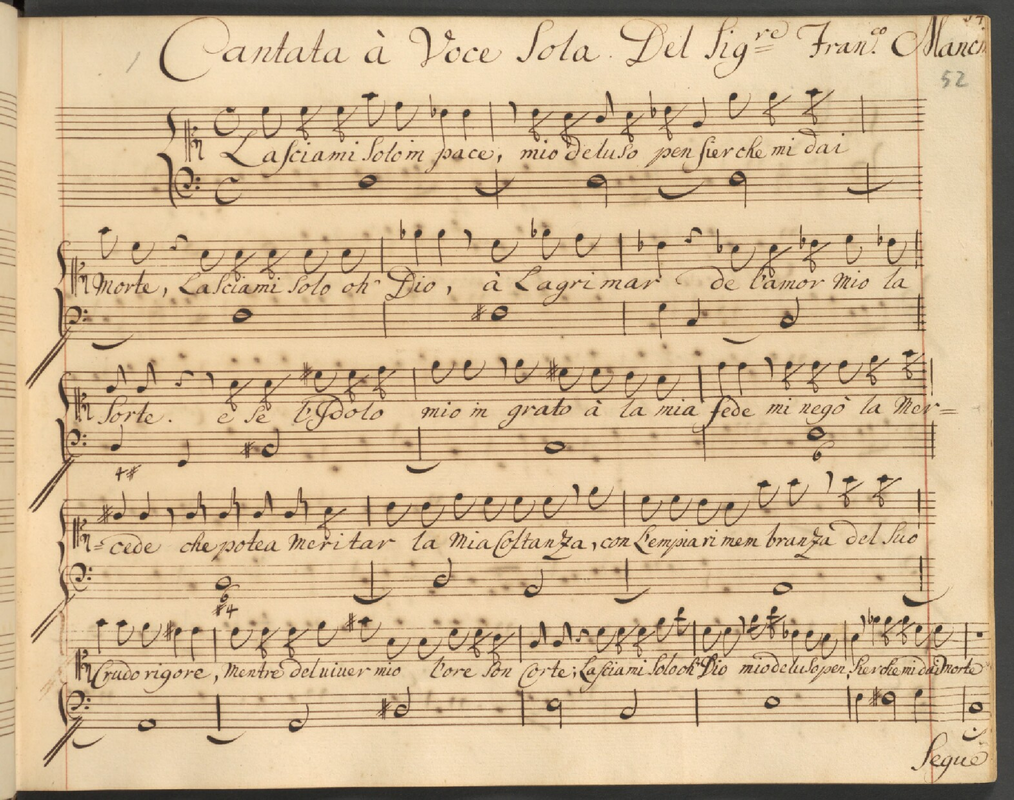 Cantata à Voce Sola. Del Sigre Franco. Manci
52
Lasciami solo in pace, mio deluso pensier che mi dai
Morte, Lasciami solo oh Dio, à Lagrimar de l'amor mio la
Sorte. e se l'Idolo mio in grato à la mia fede mi negò la Mer=
4#
6
=cede che potea Meritar la Mia Costanza, con L'empia rimembranza del suo
6
#4
Crudo rigore, Mentre del viver mio l'ore son Corte; Lasciami solo oh Dio mio deluso pensier che mi dai Morte
Segue